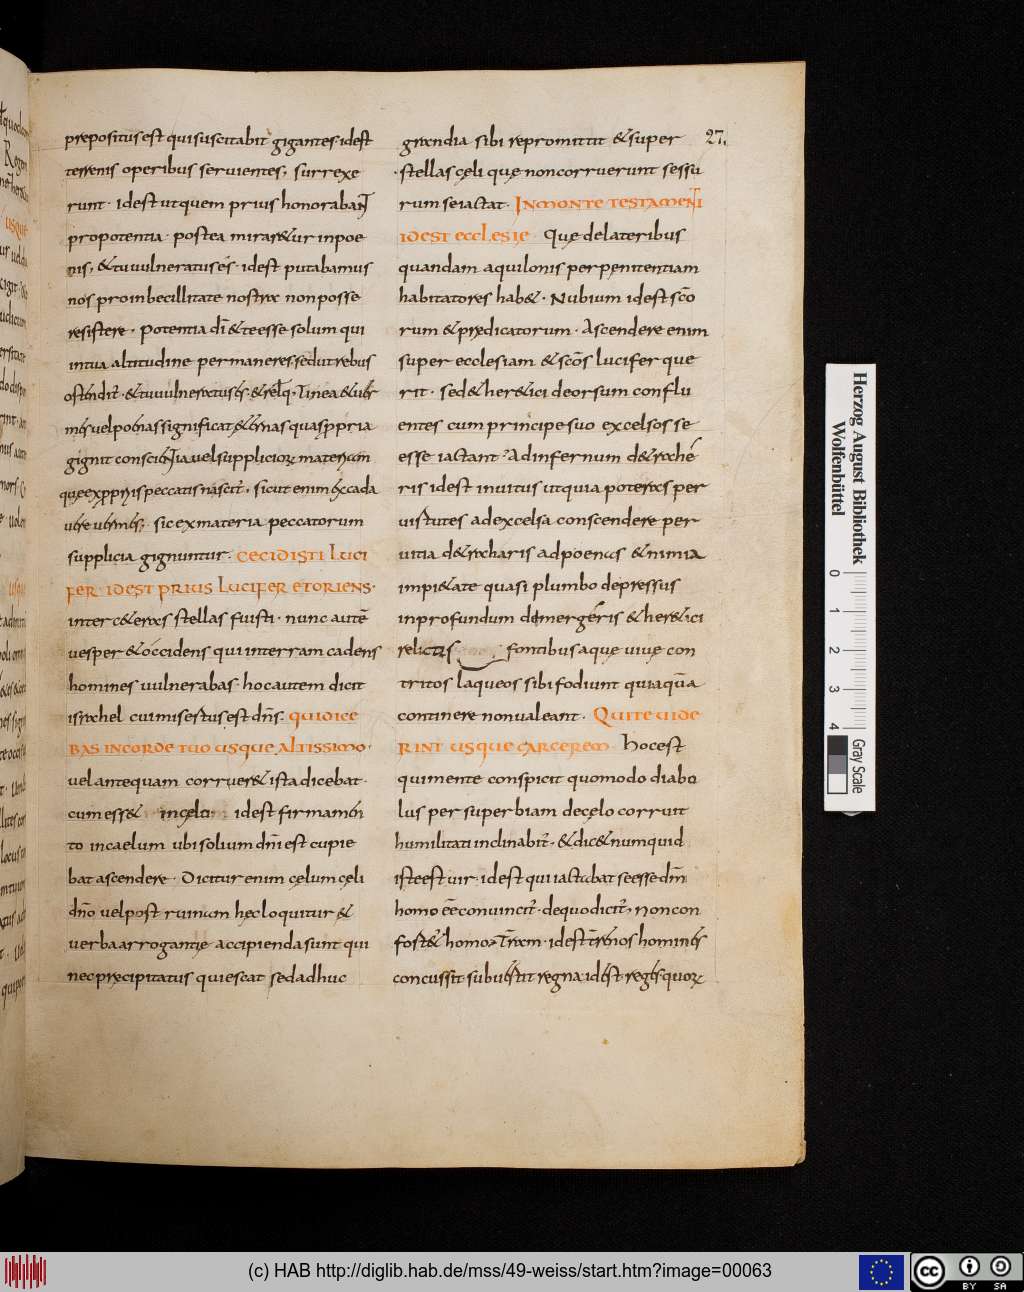 prepositus est qui suscitabit gigantes· idest
terrenis operibus servientes; surrexe
runt· Idest ut quem prius honorabant
pro potentia· postea mirar&ur in poe
nis; & tu vulneratus és· idest putabamus
nos pro inbecillitate nostra non posse
resistere· Potentia dī & te esse solum qui
in tua altitudine permaneres, sed ut rebus
mēs vel poenas significat
gignit conscientia vel suppliciorum materiam
que ex propriis peccatis nascit̄, sicut enim
sic ex materia peccatorum
supplicia gignuntur· CECIDISTI LUCI
FER· IDEST PRIUS LUCIFER ET ORIENS·
inter c&eras stellas fuisti· nunc autē
vesper & occidens qui in terram cadens
homines vulnerabas· hoc autem dicit
israhel cui misestus est dn̄s· QUI DICE
BAS IN CORDE TUO USQUE ALTISSIMO·
vel antequam corruer& ista dicebat·
cum ess& in cęlo idest firmamen
to in caelum ubi solium dn̄i est cupie
bat ascendere· Dicitur enim cęlum cęli
dn̄o vel post ruinam hęc loquitur &
verba arrogantię accipienda sunt qui
nec pręcipitatus quiescat sed adhuc
27.
grandia sibi repromittit & super
stellas cęli quę non corruerunt sessu
rum se iactat· IN MONTE TESTAMENTI
IDEST ECCLESIE Quę de lateribus
quandam aquilonis per penitentiam
habitatores hab&· Nubium idest sc̄o
rum & prędicatorum· Ascendere enim
super ecclesiam & sc̄os lucifer que
rit· sed & her&ici deorsum conflu
entes cum principe suo excelsos se
esse iactant· Ad infernum d&rahé
ris idest invitus ut quia poteras per
virtutes ad excelsa conscendere per
vitia d&raharis ad poenas & nimia
impi&ate quasi plumbo depressus
in profundum demergeris & her&ici
relictis fontibus aquę vivę con
tritos laqueos sibi fodiunt qui aquā
continere non valeant· QUI TE VIDE
RINT USQUE CARCEREM· Hoc est
qui mente conspicit quomodo diabo
lus per superbiam de cęlo corruit
humilitati inclinabit̄· & dic& numquid
iste est vir· idest qui iactabat se esse dm̄
homo eē convincit̄· de quo dicit̄, non con
fost& homo· Trām· idest trenos homines
concussit subvertit regna idest reges quorum
Herzog August Bibliothek
Wolfenbüttel
0 1 2 3 4
Gray Scale
(c) HAB http://diglib.hab.de/mss/49-weiss/start.htm?image=00063
cc BY SA